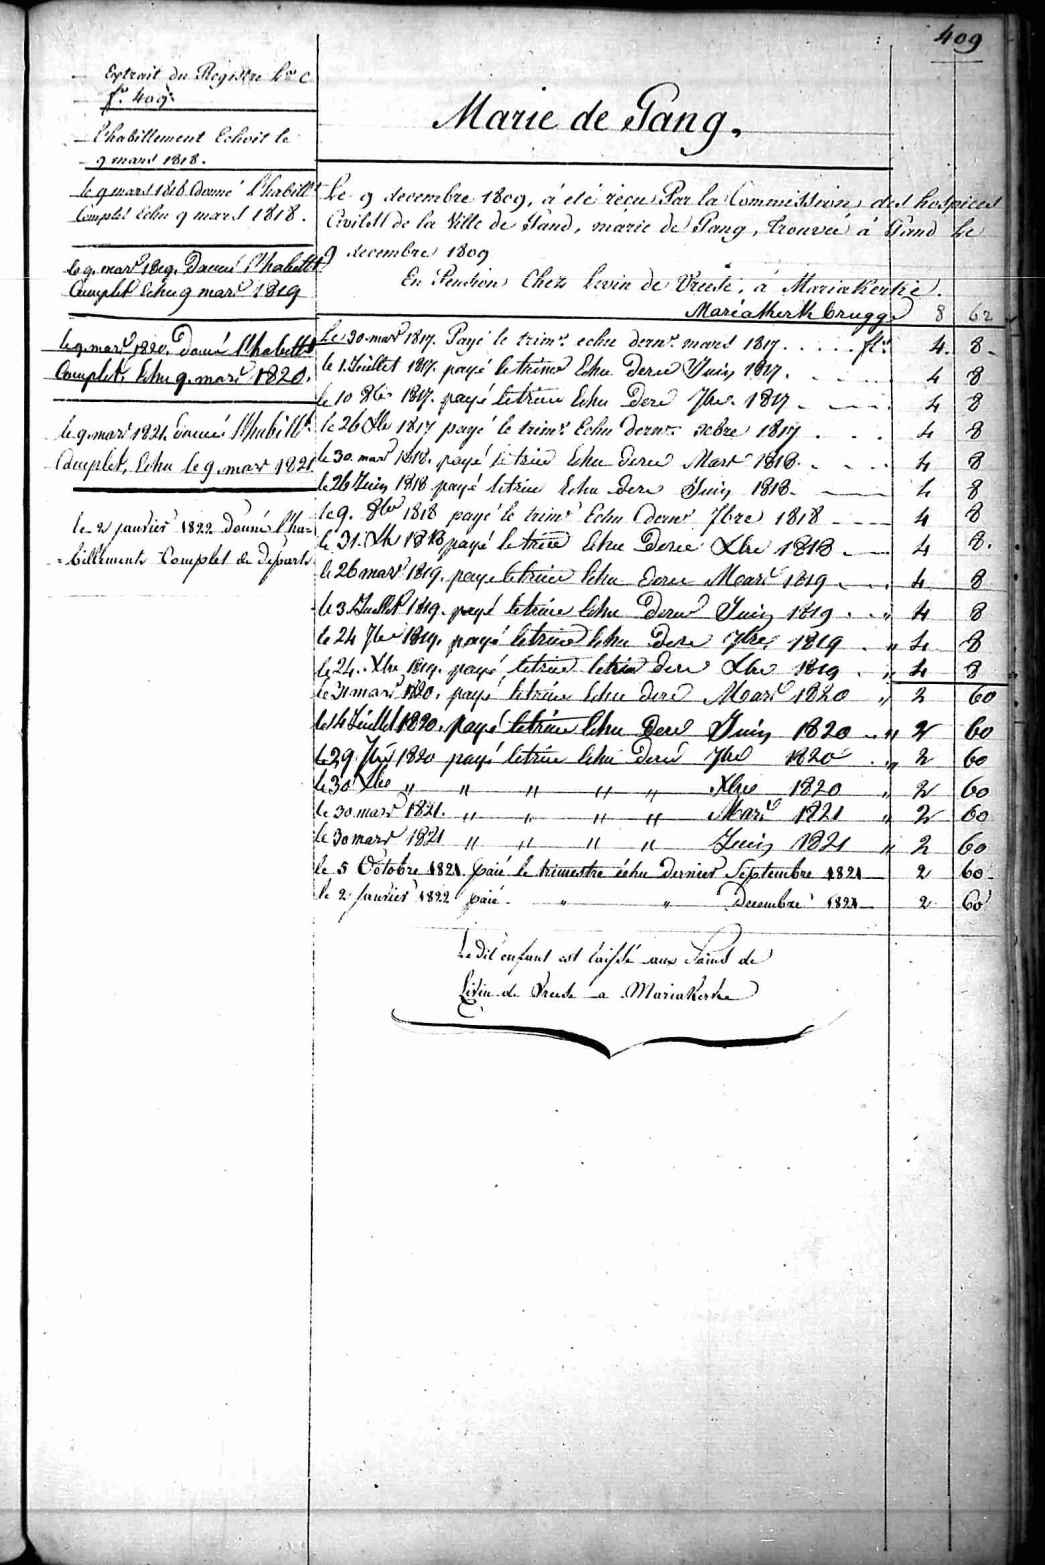 409
Extrait du Registre Lra C
f.° 409.
l'habillement Echoit le
9 mars 1818.
le 9 mars 1818 donné l'habillt
Complet Echu 9 mars 1818.
le 9. mars 1819. Donné l'habillt
Complet Echu 9 mars 1819
le 9. mars 1820. Donné l'habillt
Complet, Echu 9. mars 1820.
le 9. mars 1821. donné l'habillt
Complet, Echu le 9. mars 1821.
le 2 janvier 1822 Donné l'ha-
-billement Complet de départ
Marie de Gang,
Le 9 decembre 1809, à été reçu Par la Commission des hospices
Civiles de la Ville de Gand, marie de Gang, trouvée à Gand le
9 decembre 1809
En Pension Chez Levin de Vreese, à Mariakerke.
Mariakerk brugge 8 62
Le 30 mars 1817. Payé le trimr echu dernr mars 1817 . . . . . fls 4. 8.
le 1 Juillet 1817. payé le trime Echu derne Juin 1817. . . . . 4 8
le 10 8bre 1817. payé le trime Echu Dere 7bre 1817 . . . 4 8
le 26 Xbre 1817 payé le trimr Echu dernr xbre 1817 . . . . 4 8
le 30 mars 1818. payé le trime Echu derne Mars 1818. . . . 4 8
le 26 Juin 1818 payé le trime Echu dere Juin 1818. 4 8
le 9. 8bre 1818 payé le trimr Echu dernr 7bre 1818 4 8
le 31. Xbre 1818 payé le trime Echu Derne Xbre 1818 4 8.
le 26 mars 1819. payé le trime Echu derne Mars 1819 4 8
le 3 Juillet 1819. payé le trime Echu derne Juin 1819 . . „ 4 8
le 24 7bre 1819. payé le trime Echu Dere 7bre 1819 „ 4 8
le 24. Xbre 1819. payé le trime Echu dere Xbre 1819 . „ 4 8
le 31 mars 1820. payé le trime Echu dere Mars 1820 „ 2 60
le 14 Juillet 1820. payé le trime Echu Dere Juin 1820 . „ 2 60
le 29 7bre 1820 payé le trime Echu Dere 7bre 1820 . „ 2 60
le 30 Xbre „ „ „ „ „ Xbre 1820 „ 2 60
le 30 mars 1821. „ „ „ „ Mars 1821 „ 2 60
le 30 mars 1821 „ „ „ „ Juin 1821 „ 2 60
le 5 Octobre 1821 païé le trimestre échu dernier Septembre 1821 2 60
le 2 janvier 1822 païé „ „ Decembre 1821 2 60
Le dit enfant est laissé aux Soins de
Livin de Vreese a Mariakerke